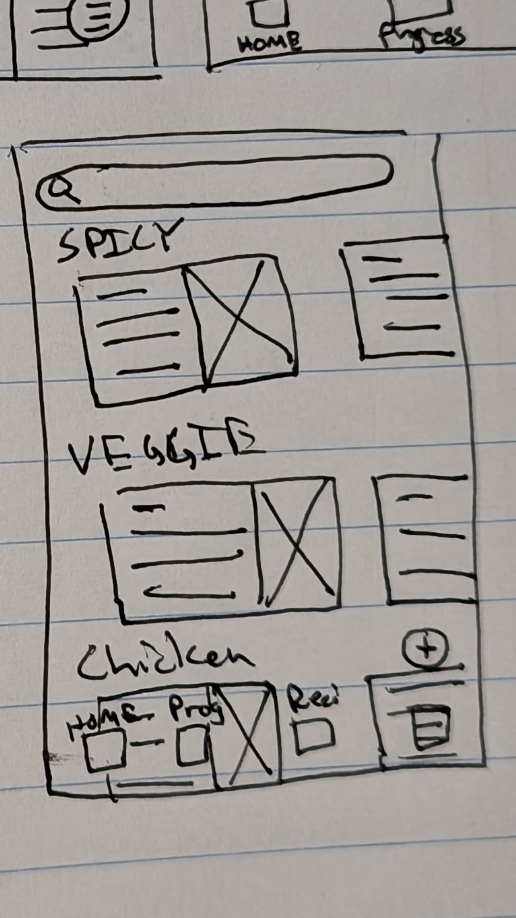 HOME Progress
SPICY
VEGGIE
Chicken
HOME Prog Reci